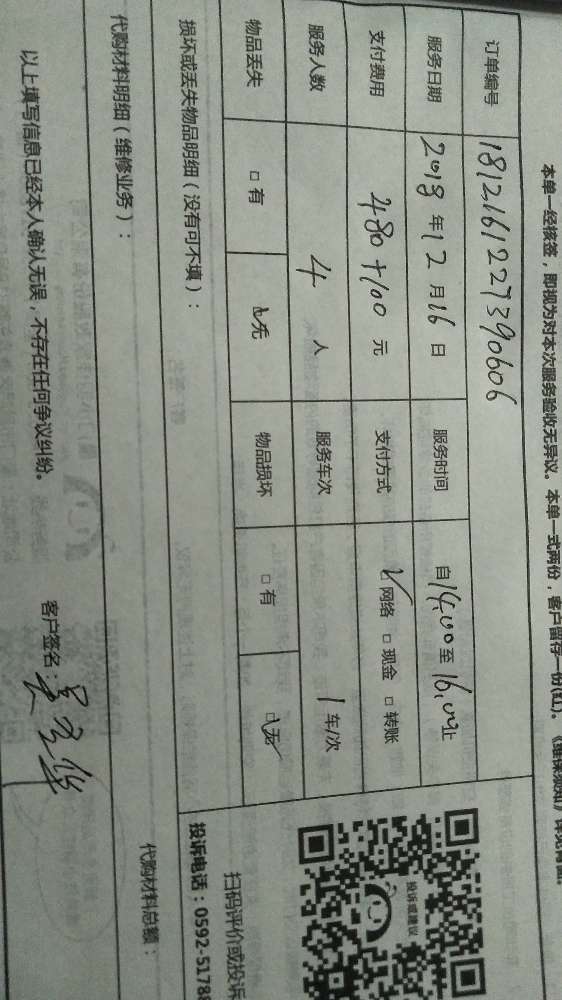 本单一经核签，即视为对本次服务验收无异议。本单一式两份，客户留存一份(红)。《维保须知》详见背面。
订单编号 1812161227390606
服务日期 2018年12月16日 服务时间 自14:00至16:00止
支付费用 480+100元 支付方式 ☑网络 □现金 □转账
服务人数 4人 服务车次 1车/次
物品丢失 □有 ☑无 物品损坏 □有 ☑无
损坏或丢失物品明细（没有可不填）：
代购材料明细（维修业务）：
代购材料总额：
以上填写信息已经本人确认无误，不存在任何争议纠纷。
客户签名：
投诉或建议
扫码评价或投诉
投诉电话：0592-5178